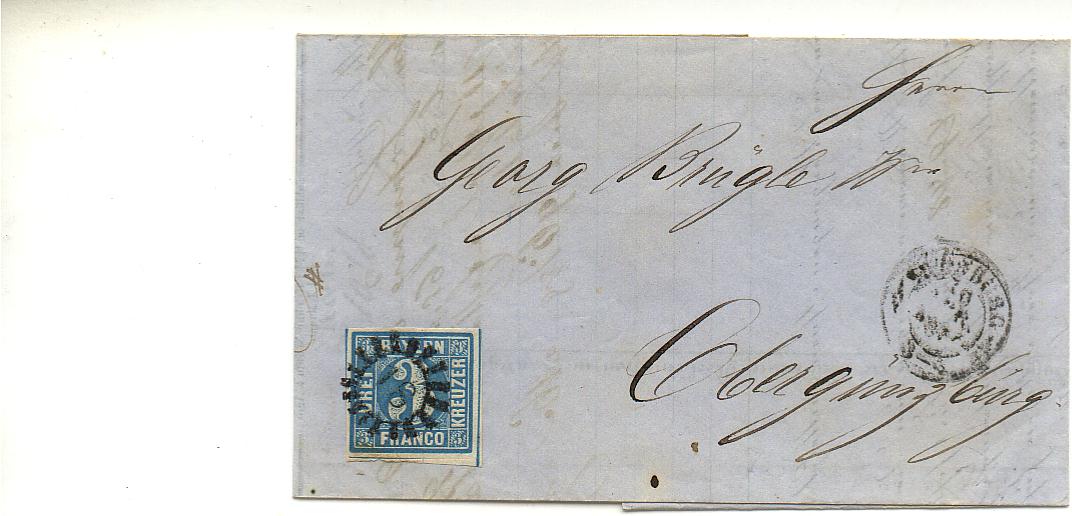 Herrn
Georg Brügle Wwe
Obergünzburg.
BAYERN
DREI
3
KREUZER
FRANCO